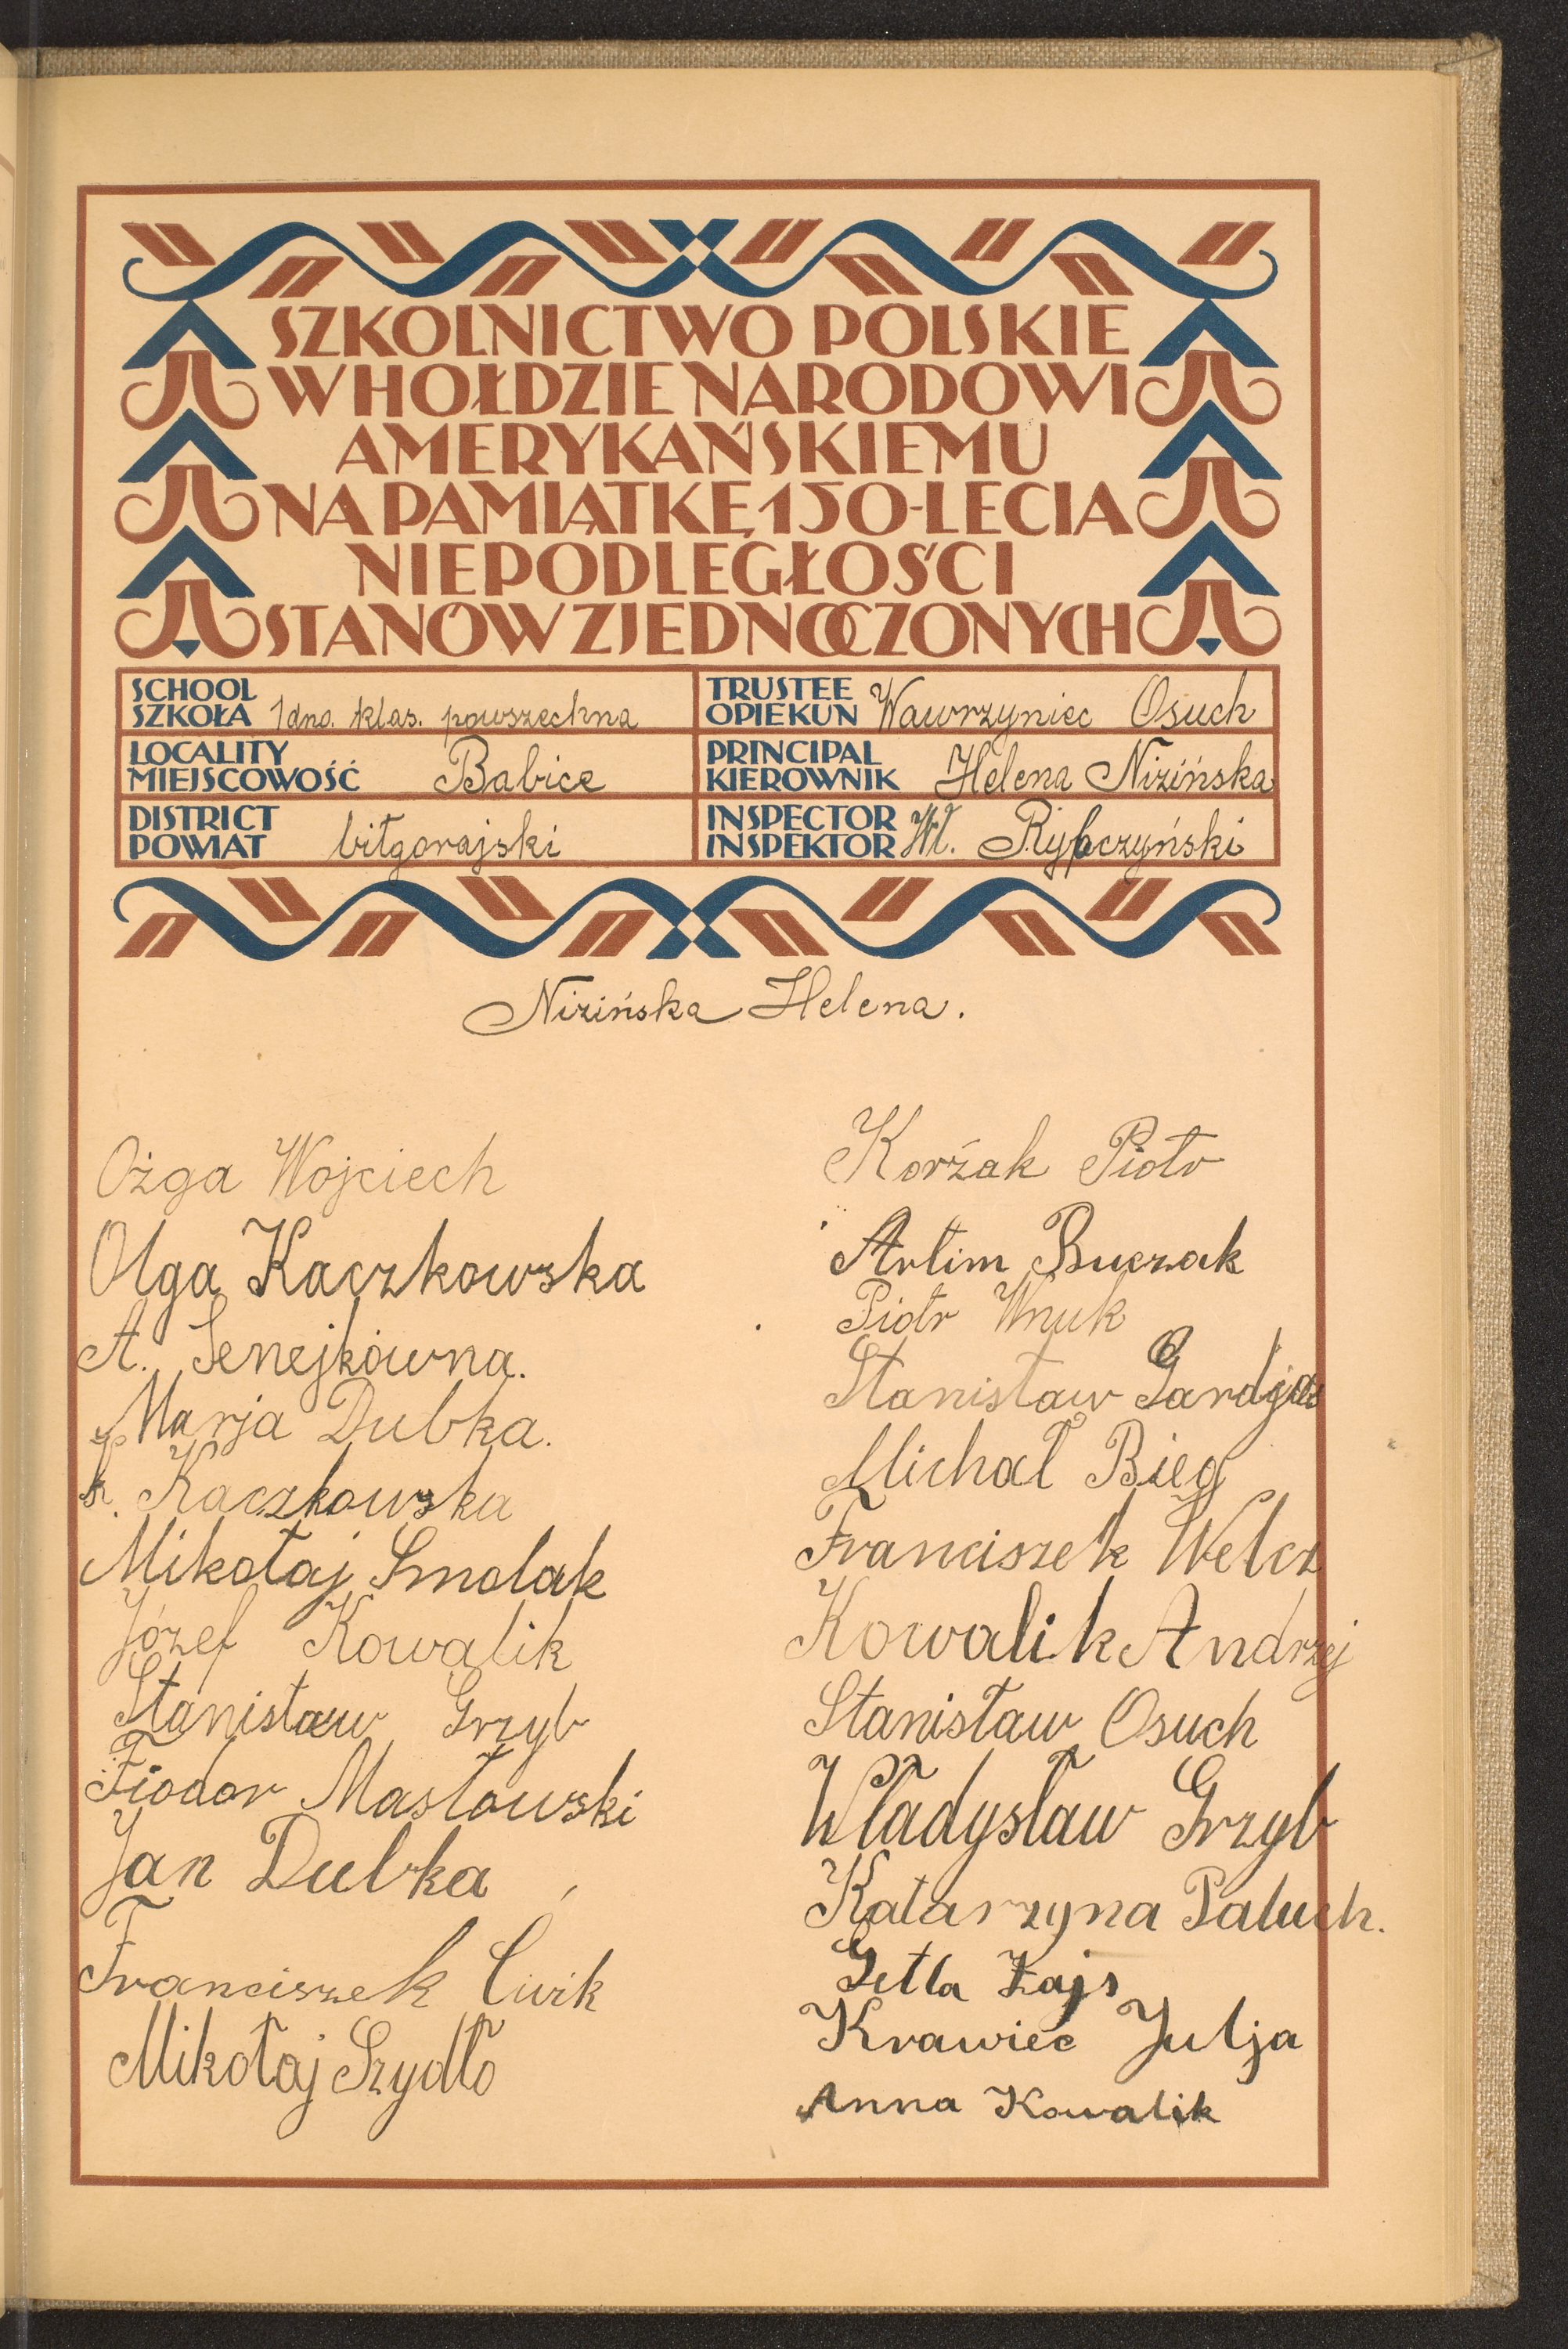 SZKOLNICTWO POLSKIE
W HOŁDZIE NARODOWI
AMERYKAŃSKIEMU
NA PAMIĄTKĘ 150-LECIA
NIEPODLEGŁOŚCI
STANÓW ZJEDNOCZONYCH
SCHOOL
SZKOŁA 1dno. klas. powszechna
TRUSTEE
OPIEKUN Wawrzyniec Osuch
LOCALITY
MIEJSCOWOŚĆ Babice
PRINCIPAL
KIEROWNIK Helena Nizińska
DISTRICT
POWIAT biłgorajski
INSPECTOR
INSPEKTOR Wł. Rybczyński
Nizińska Helena.
Ożga Wojciech
Olga Kaczkowska
A. Senejkówna.
Marja Dubka.
Kaczkowska
Mikołaj Smolak
Józef Kowalik
Stanisław Grzyb
Fiodor Masłowski
Jan Dubka
Franciszek Ćwik
Mikołaj Szydło
Korżak Piotr
Artim Buczak
Piotr Wnuk
Stanisław
Michał Bieg
Franciszek Welcz
Kowalik Andrzej
Stanisław Osuch
Władysław Grzyb
Katarzyna Paluch.
Getla Zajs
Krawiec Julja
Anna Kowalik